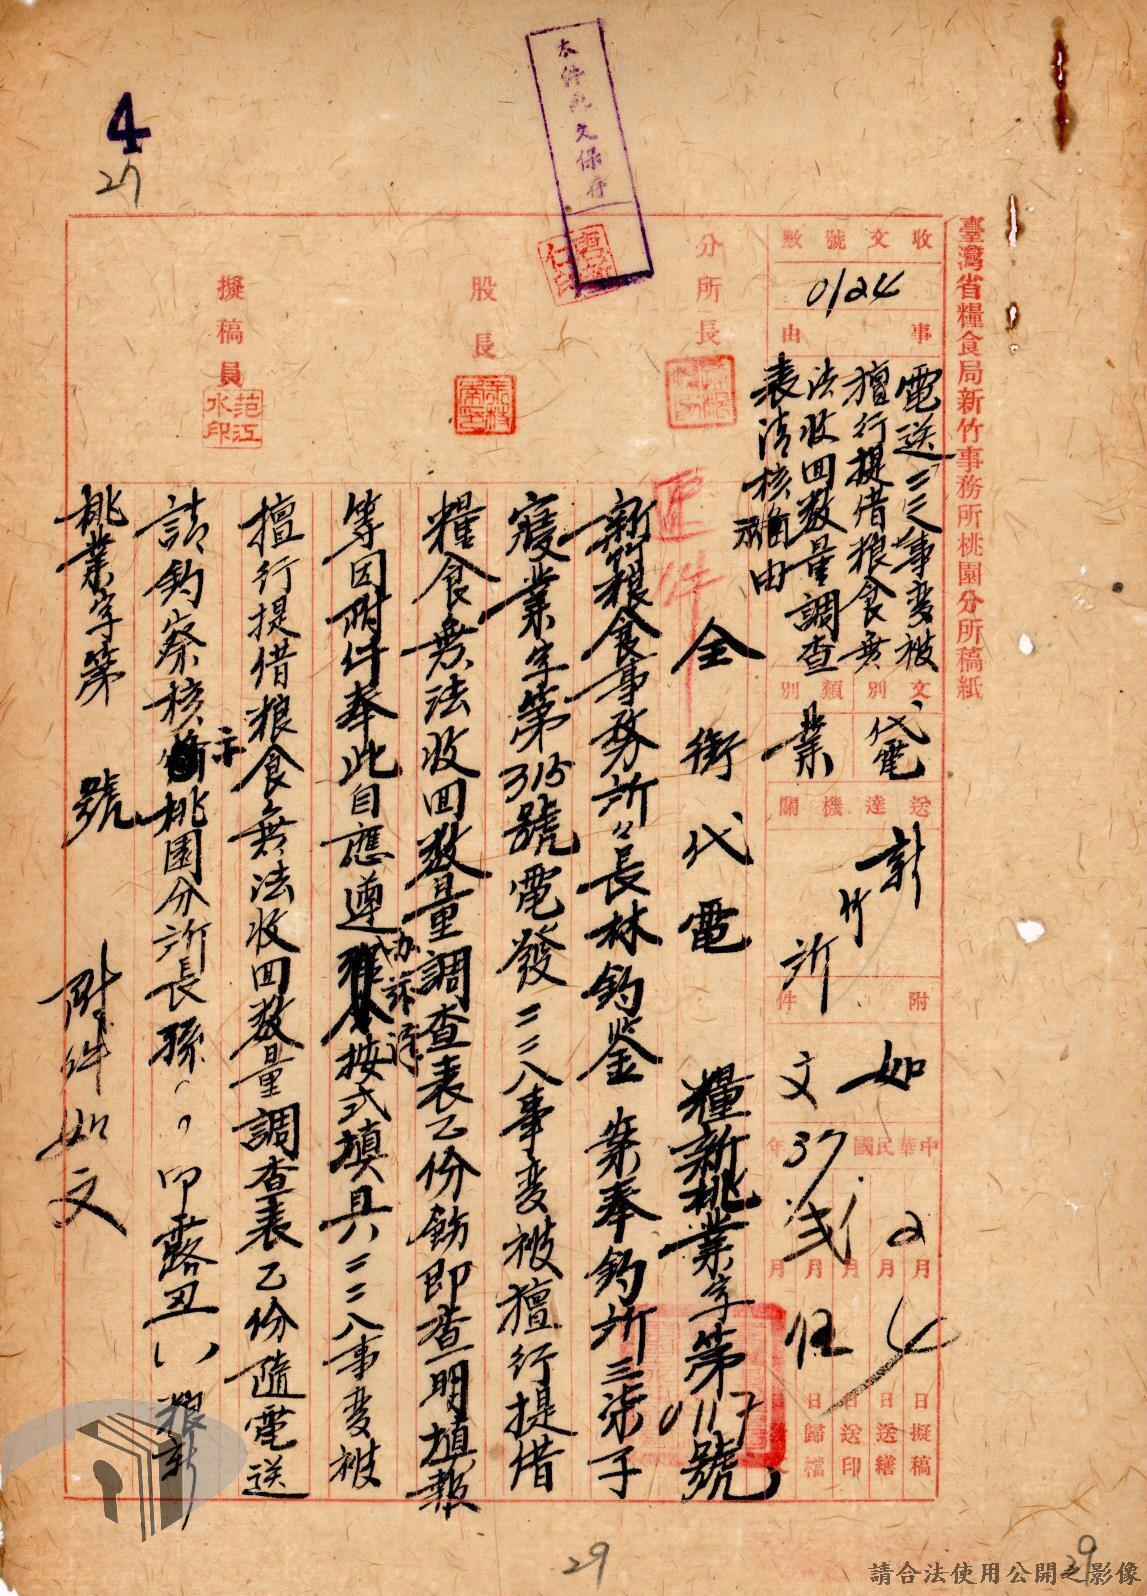 4
27
本件死文保存
臺灣省糧食局新竹事務所桃園分所稿紙
收文號數
0124
事由
電送二二八事變被
擅行提借粮食無
法收回数量調查
表請核備由
文別
代電
類別
業
送達機關
新竹所
附件
如文
中華民國
年
37
2
4
月
日擬稿
月
日送繕
月
日送印
月
日歸檔
弍
伍
分所長
股長
擬稿員
范江水印
全銜代電
糧新桃業字第0117號
新竹粮食事务所々長林鈞鉴 案奉鈞所三柒子
寢業字第315號電發二二八事变被擅行提借
糧食無法收回数量調查表乙份飭即查明填報
等因附件奉此自應遵办兹谨按式填具二二八事变被
擅行提借粮食無法收回数量調查表乙份隨電送
請鈞察核示桃園分所長孫、、叩露丑㈧粮新
桃業字第 號 附件如文
29
29
請合法使用公開之影像